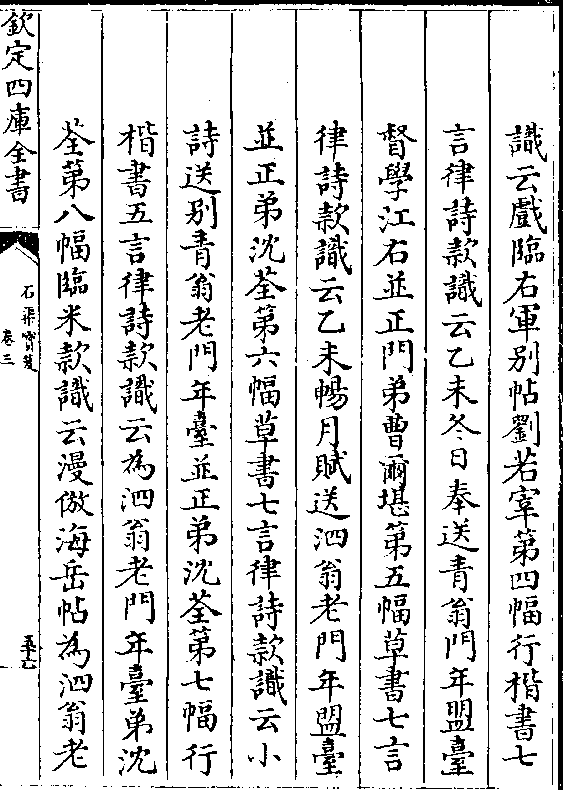 識云戲臨右軍別帖劉若宰第四幅行楷書七
言律詩款識云乙未冬日奉送青翁門年盟臺
督學江右並正門弟曹爾堪第五幅草書七言
律詩款識云乙未暢月賦送泗翁老門年盟臺
並正弟沈荃第六幅草書七言律詩款識云小
詩送别青翁老門年臺並正弟沈荃第七幅行
楷書五言律詩款識云為泗翁老門年臺弟沈
荃第八幅臨米款識云漫倣海岳帖為泗翁老
欽定四庫全書
石渠寶笈
卷三